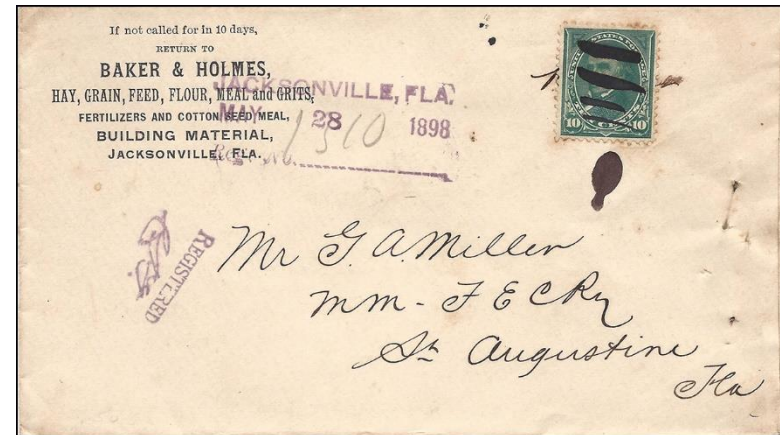 If not called for in 10 days,
RETURN TO
BAKER & HOLMES,
HAY, GRAIN, FEED, FLOUR, MEAL and GRITS,
FERTILIZERS AND COTTON SEED MEAL,
BUILDING MATERIAL,
JACKSONVILLE, FLA.
JACKSONVILLE, FLA.
MAY 28 1898
1510
10 10
REGISTERED
Mr G. A. Miller
mm - F E C Ry
St Augustine
Fla